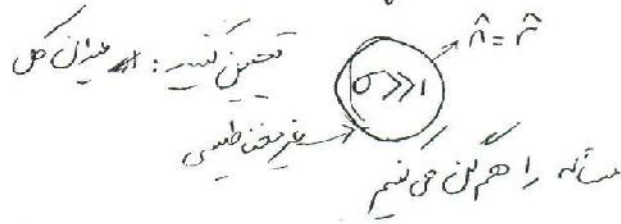 تعیین کنید: میدان کل
n̂ = r̂
σ>>1
غیر مغناطیسی
مسأله را همگن می کنیم